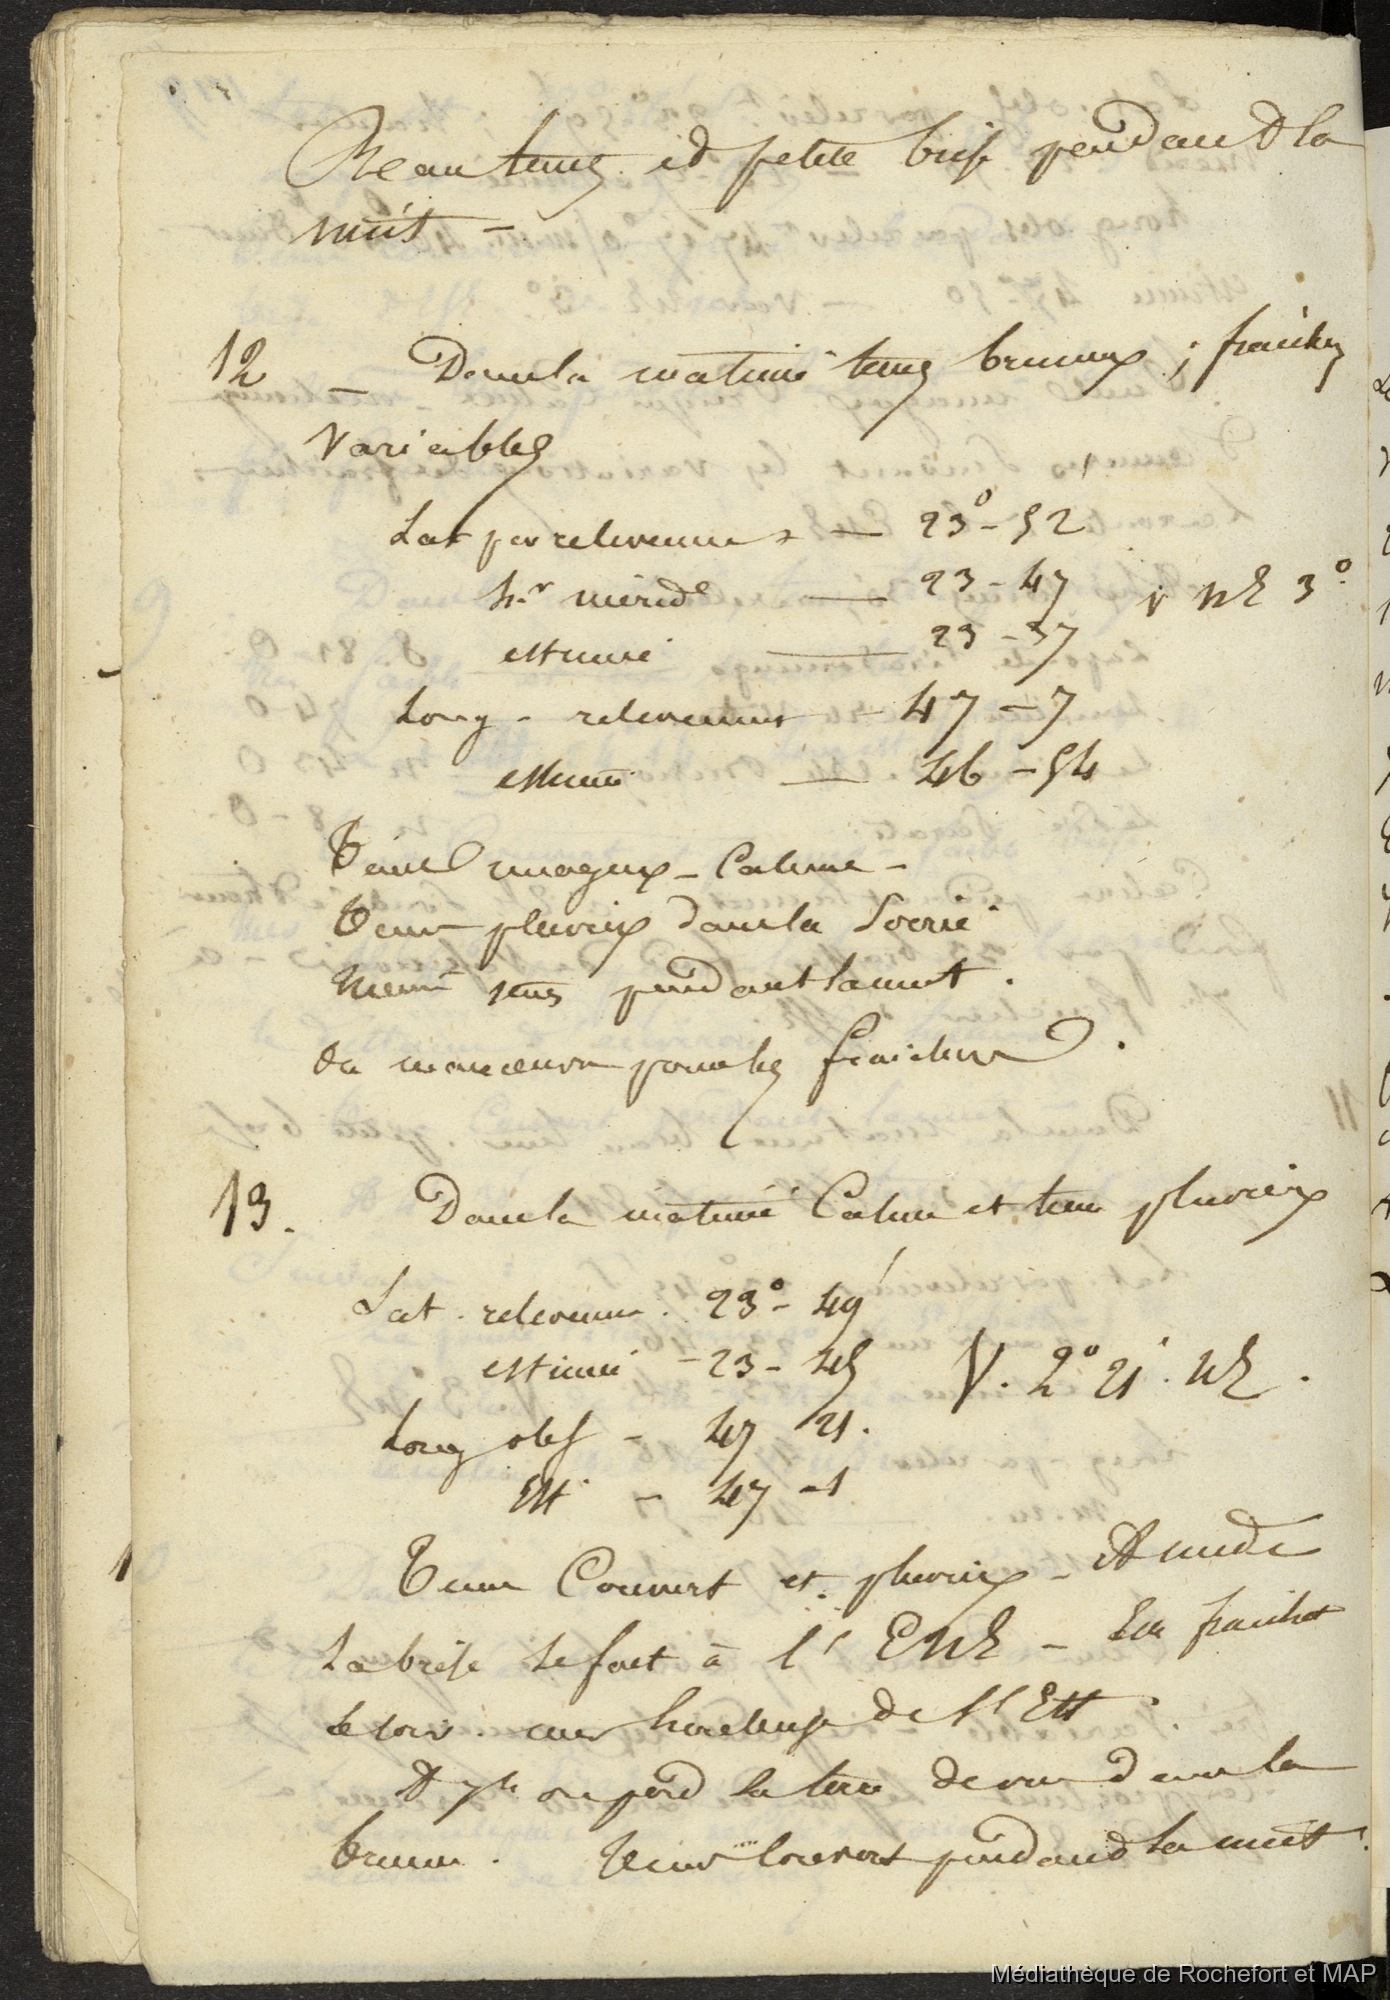 Beau tems et petite brise pendant la
nuit —
12 — Dans la matinée tems brumeux ; fraicheurs
Variables
Lat par relevement — 23° - 52'
hr merid^e — 23 - 47 V NE 3°
estimée — 23 - 37
Long - relevement — 47 - 7
estimée — 46 - 54
Tems nuageux - Calme -
Tems pluvieux dans la Soirée
Même tems pendant la nuit .
On manoeuvre pour les fraicheurs .
13. Dans la matinée Calme et tems pluvieux
Lat . relevem . 23° - 49'
estimée - 23 - 45 V. 2° 21' NE .
Long obs - 47 21 .
Est - 47 - 1
Tems Couvert et pluvieux - A midi
La brise se fait à l' ENE - Elle fraichit
le soir . mer houleuse de l' Est .
A 7h on perd la terre de vue dans la
brume . Tems Couvert pendant la nuit .
Médiathèque de Rochefort et MAP